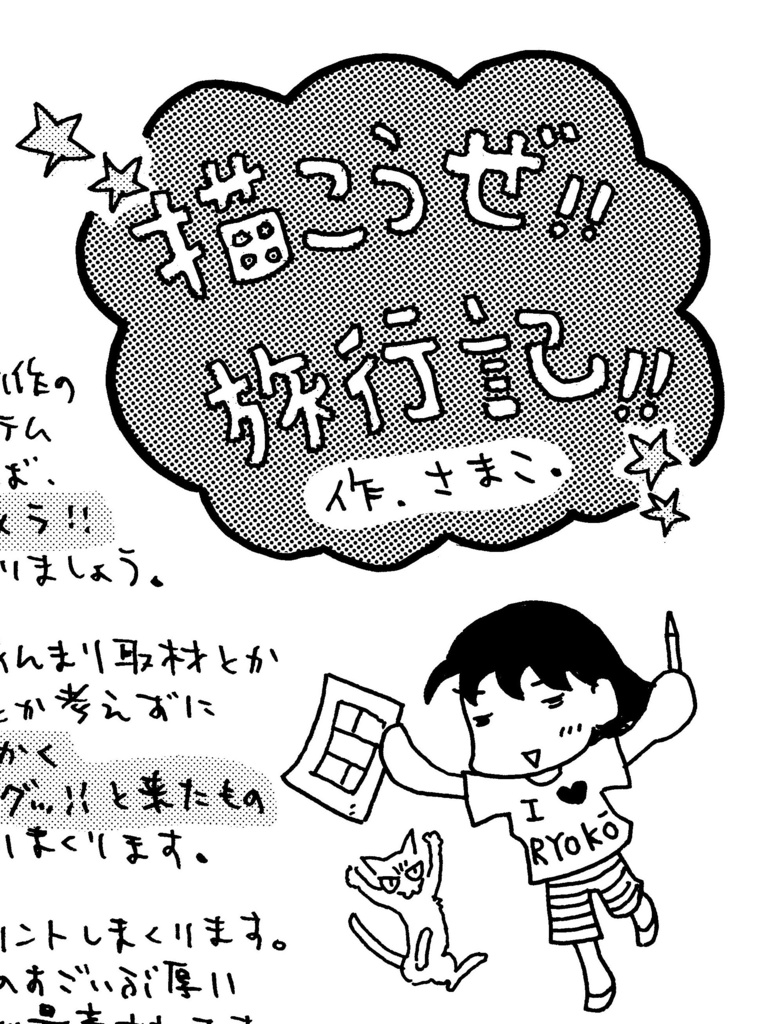 描こうぜ!!
旅行記!!
作.さまこ.
作の
テム
ば、
う!!
りましょう。
んまり取材とか
とか考えずに
かく
グッ!!と来たもの
しまくります。
リントしまくります。
のすごいぶ厚い
I ♥
RYOKŌ